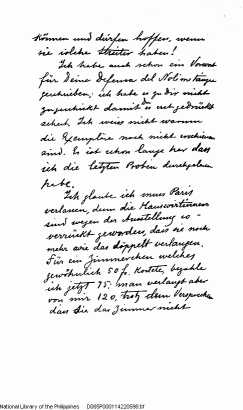 können und dürfen hoffen, wenn
sie solche Streiter haben!
Ich habe auch schon ein Vorwort
für Deine Defensa del Noli me tángere
geschrieben; ich habe es zu dir nicht
zugeschickt damit du es net gedrückt
siehst. Ich weiss nicht warum
die Exemplare noch nicht erschienen
sind. Es ist schon lange her dass
ich die letzten Proben durchgelesen
habe.
Ich glaube ich muss Paris
verlassen, denn die Hauswirtinnen
sind wegen der Ausstellung so
verrückt geworden, dass sie noch
mehr wie das doppelt verlangen.
Für ein Zimmerchen welches
gewöhnlich 50 f. kostete, bezahle
ich jetzt 75. man verlangt aber
von mir 120, trotz dem Versprechen
dass sie das Zimmer nicht
National Library of the Philippines